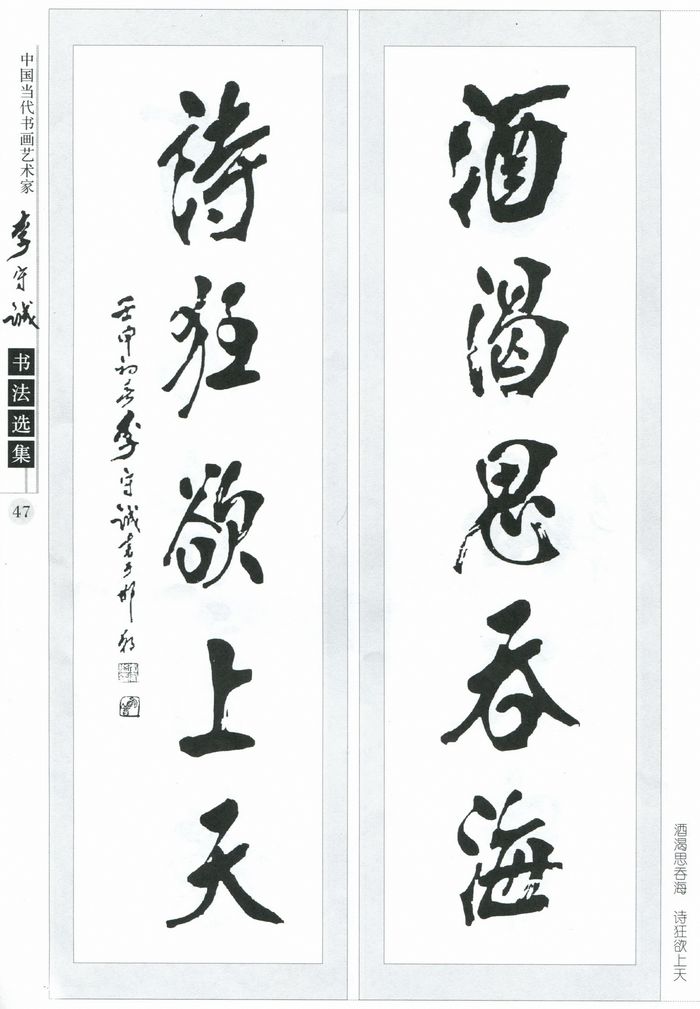 酒渴思吞海
詩狂欲上天
壬申初冬李守诚书于邯郸
中国当代书画艺术家
李守诚
书法选集
47
酒渴思吞海 诗狂欲上天